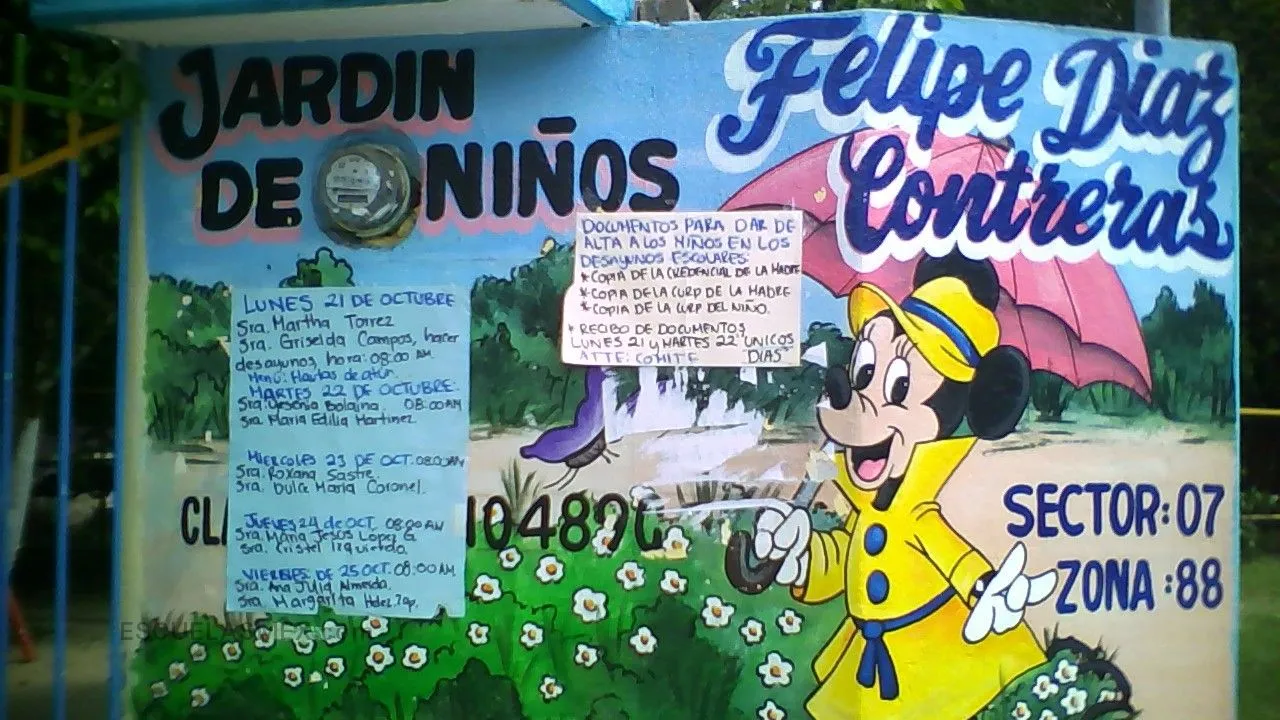 JARDIN
DE NIÑOS
Felipe Diaz
Contreras
DOCUMENTOS PARA DAR DE
ALTA A LOS NIÑOS EN LOS
DESAYUNOS ESCOLARES:
*COPIA DE LA CREDENCIAL DE LA MADRE
*COPIA DE LA CURP DE LA MADRE
*COPIA DE LA CURP DEL NIÑO.
* RECIBO DE DOCUMENTOS
LUNES 21 y MARTES 22 "UNICOS
ATTE: COMITE "DIAS"
LUNES 21 DE OCTUBRE
Sra. Martha Torrez
Sra. Griselda Campos, hacer
desayunos, hora: 08:00 AM.
Menú: de atún.
MARTES 22 DE OCTUBRE:
Sra. Yesenia Bolaina 08:00AM
Sra. Maria Edilia Martinez
MIERCOLES 23 DE OCT. 08:00AM
Sra. Roxana Sastre.
Sra. Dulce Maria Coronel.
JUEVES 24 de OCT. 08:00 AM
Sra. Maria Jesus Lopez G.
Sra. Cristel Izquierdo.
VIERNES DE 25 OCT. 08:00AM.
Sra. Ana Julia Almeida.
Sra. Margarita Hdez. Zap.
CL
10489
SECTOR: 07
ZONA :88